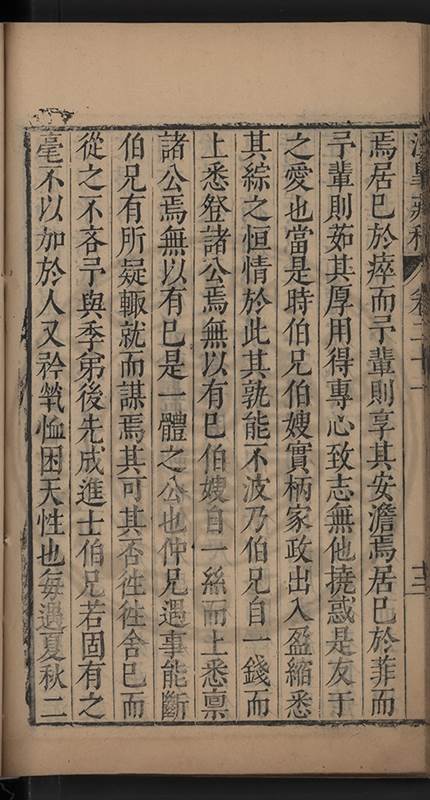 卷二十一
十三
焉居已於瘁而予輩則享其安澹焉居已於菲而
予輩則茹其厚用得專心致志無他撓惑是友于
之愛也當是時伯兄伯嫂實柄家政出入盈縮悉
其綜之恒情於此其孰能不波乃伯兄自一錢而
上悉登諸公焉無以有已伯嫂自一絲而上悉稟
諸公焉無以有已是一體之公也仲兄遇事能斷
伯兄有所疑輙就而謀焉其可其否徃徃舍已而
從之不吝予與季弟後先成進士伯兄若固有之
毫不以加於人又矜煢恤困天性也每遇夏秋二